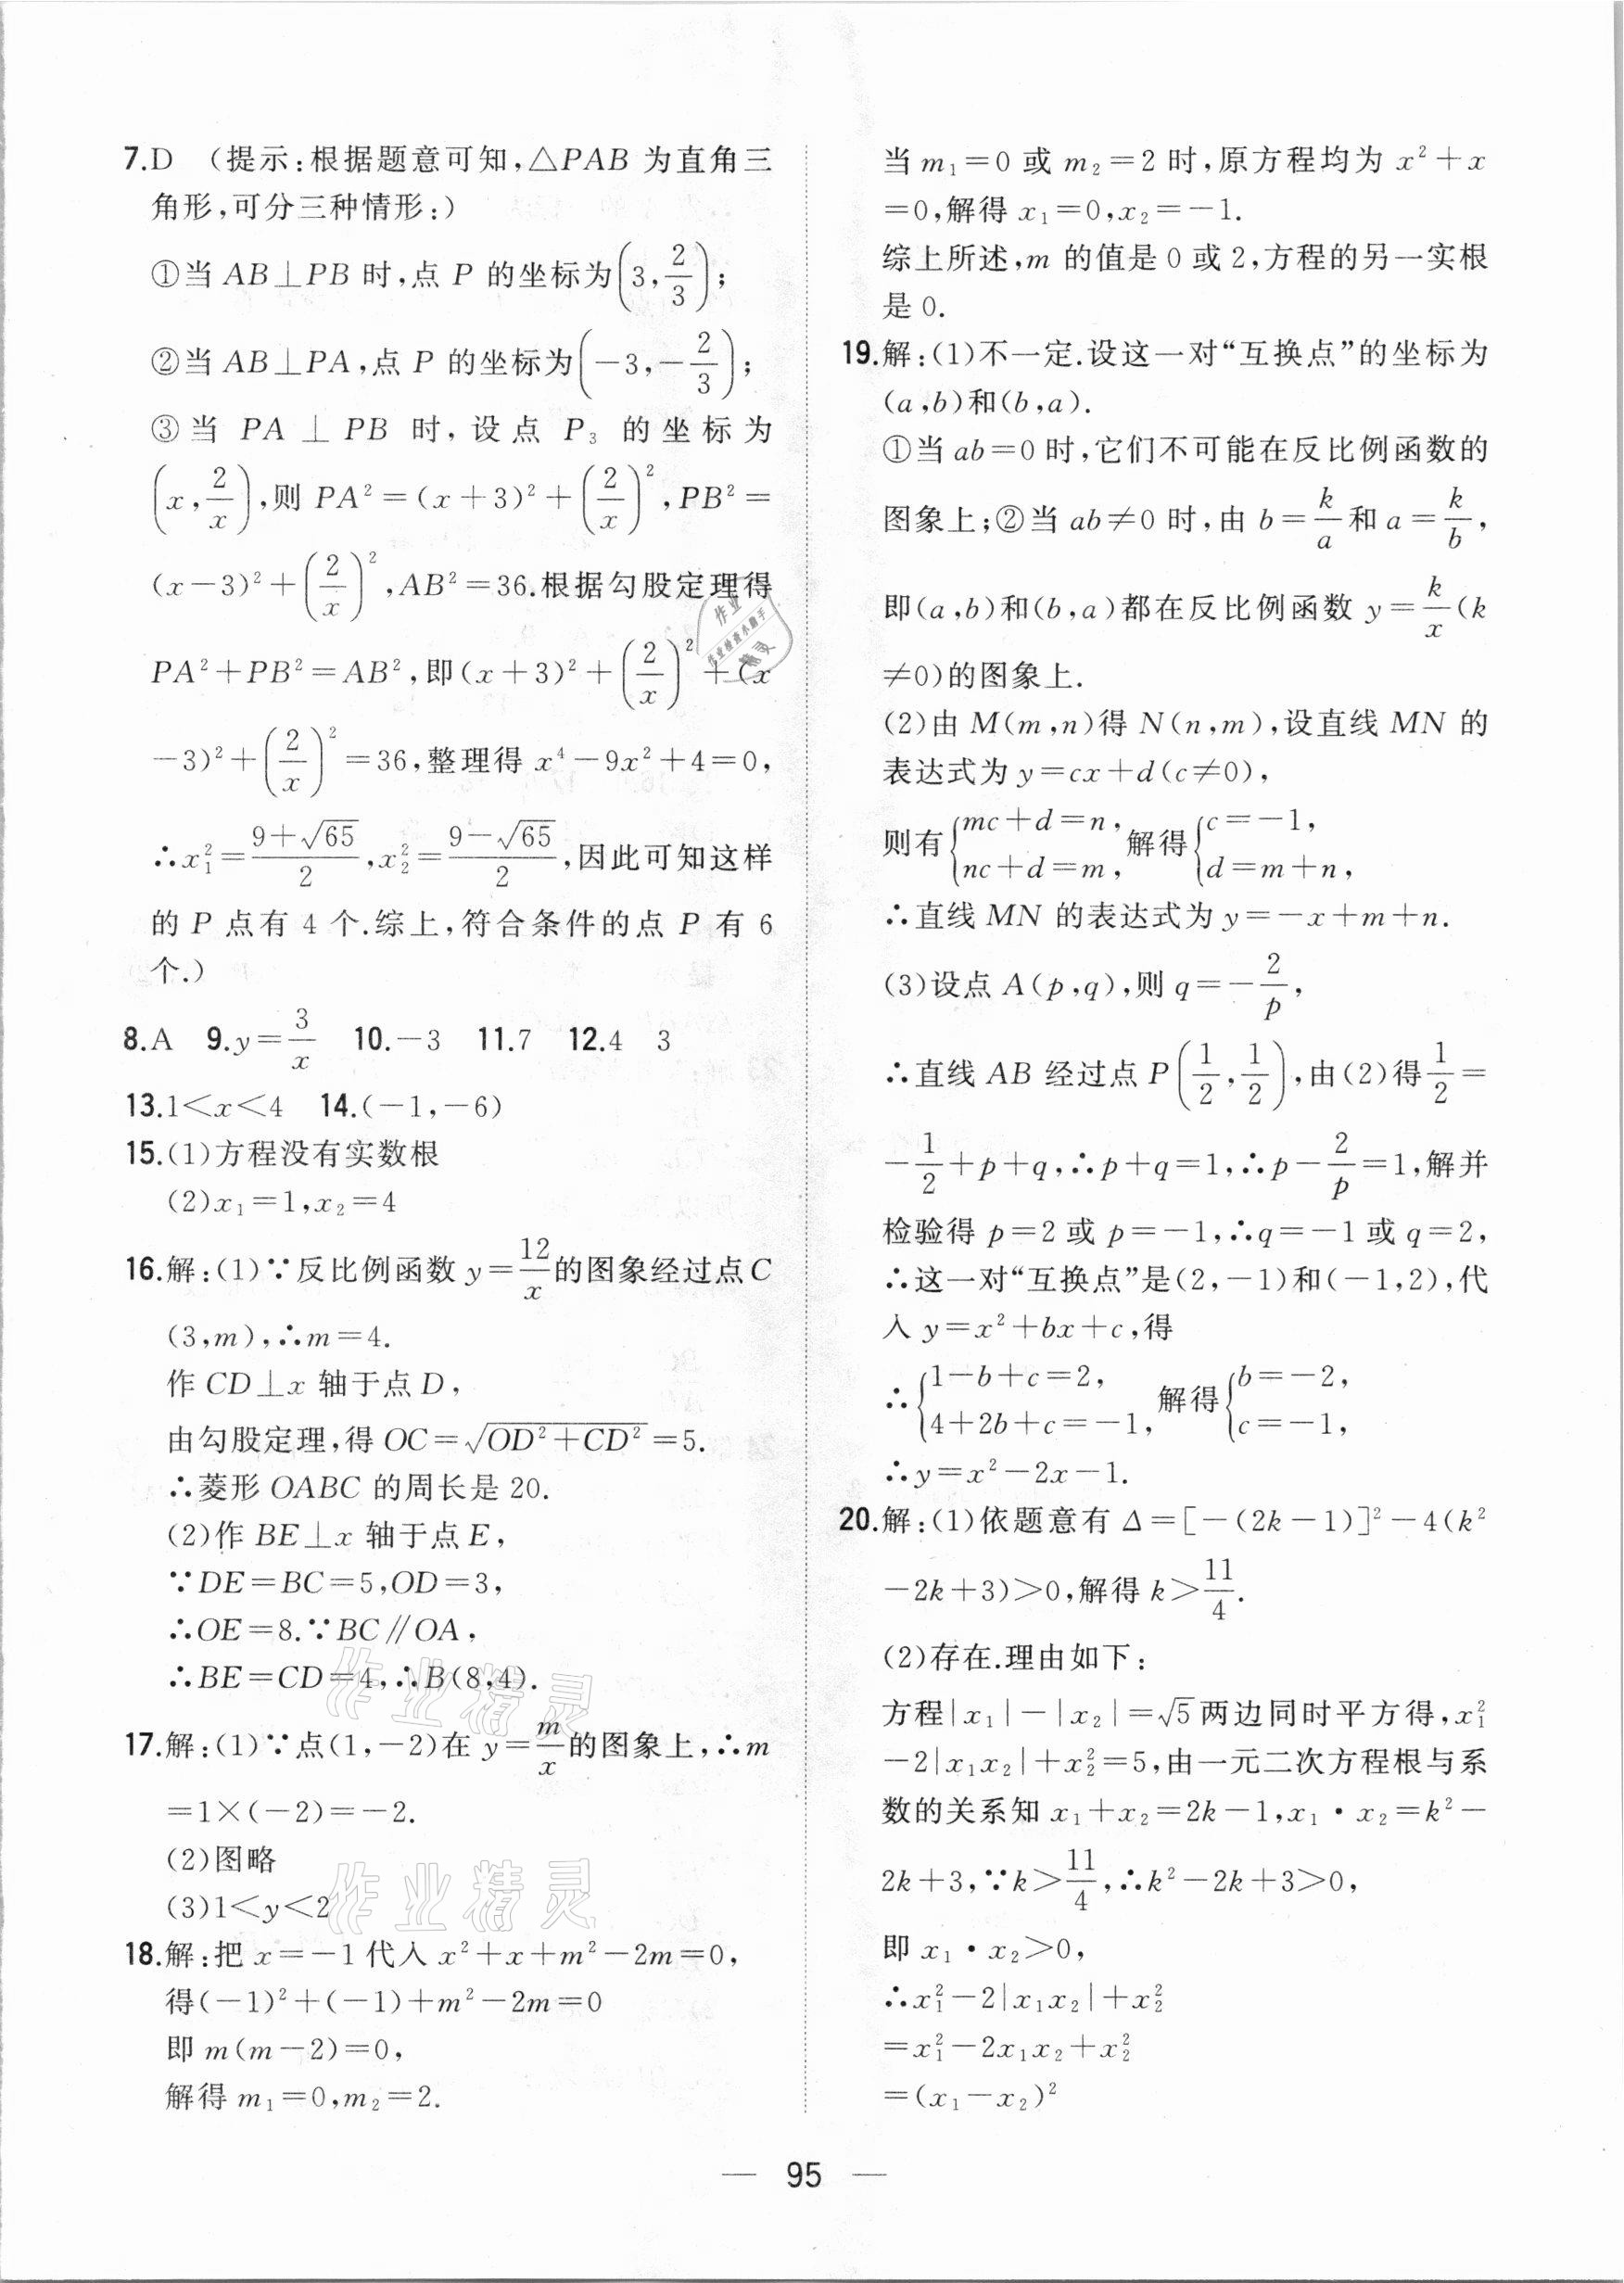 7.D （提示:根据题意可知,△PAB 为直角三
角形,可分三种情形:）
①当 AB⊥PB 时,点 P 的坐标为(3,2/3);
②当 AB⊥PA,点 P 的坐标为(-3,-2/3);
③当 PA⊥PB 时,设点 P₃ 的坐标为
(x,2/x),则 PA²=(x+3)²+(2/x)²,PB²=
(x-3)²+(2/x)²,AB²=36.根据勾股定理得
PA²+PB²=AB²,即(x+3)²+(2/x)²+(x
-3)²+(2/x)²=36,整理得 x⁴-9x²+4=0,
∴x₁²=(9+√65)/2,x₂²=(9-√65)/2,因此可知这样
的 P 点有 4 个.综上,符合条件的点 P 有 6
个.）
8.A 9.y=3/x 10.-3 11.7 12.4 3
13.1<x<4 14.(-1,-6)
15.(1)方程没有实数根
(2)x₁=1,x₂=4
16.解:(1)∵反比例函数 y=12/x的图象经过点C
(3,m),∴m=4.
作 CD⊥x 轴于点D,
由勾股定理,得 OC=√(OD²+CD²)=5.
∴菱形 OABC 的周长是 20.
(2)作 BE⊥x 轴于点E,
∵DE=BC=5,OD=3,
∴OE=8.∵BC∥OA,
∴BE=CD=4,∴B(8,4).
17.解:(1)∵点(1,-2)在 y=m/x的图象上,∴m
=1×(-2)=-2.
(2)图略
(3)1<y<2
18.解:把 x=-1代入 x²+x+m²-2m=0,
得(-1)²+(-1)+m²-2m=0
即 m(m-2)=0,
解得 m₁=0,m₂=2.
当 m₁=0 或 m₂=2 时,原方程均为 x²+x
=0,解得 x₁=0,x₂=-1.
综上所述,m 的值是 0 或 2,方程的另一实根
是 0.
19.解:(1)不一定.设这一对“互换点”的坐标为
(a,b)和(b,a).
①当 ab=0 时,它们不可能在反比例函数的
图象上;②当 ab≠0 时,由 b=k/a和 a=k/b,
即(a,b)和(b,a)都在反比例函数 y=k/x(k
≠0)的图象上.
(2)由 M(m,n)得 N(n,m),设直线 MN 的
表达式为 y=cx+d(c≠0),
则有{mc+d=n, nc+d=m, 解得{c=-1, d=m+n,
∴直线 MN 的表达式为 y=-x+m+n.
(3)设点 A(p,q),则 q=-2/p,
∴直线 AB 经过点 P(1/2,1/2),由(2)得1/2=
-1/2+p+q,∴p+q=1,∴p-2/p=1,解并
检验得 p=2 或 p=-1,∴q=-1 或 q=2,
∴这一对“互换点”是(2,-1)和(-1,2),代
入 y=x²+bx+c,得
∴{1-b+c=2, 4+2b+c=-1, 解得{b=-2, c=-1,
∴y=x²-2x-1.
20.解:(1)依题意有 Δ=[-(2k-1)]²-4(k²
-2k+3)>0,解得 k>11/4.
(2)存在.理由如下:
方程|x₁|-|x₂|=√5两边同时平方得,x₁²
-2|x₁x₂|+x₂²=5,由一元二次方程根与系
数的关系知 x₁+x₂=2k-1,x₁·x₂=k²-
2k+3,∵k>11/4,∴k²-2k+3>0,
即 x₁·x₂>0,
∴x₁²-2|x₁x₂|+x₂²
=x₁²-2x₁x₂+x₂²
=(x₁-x₂)²
— 95 —
作业精灵
作业精灵